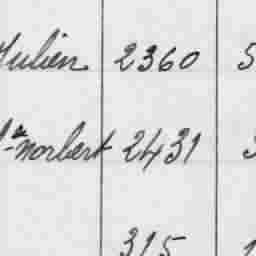 Julien 2360 5
norbert 2431
315